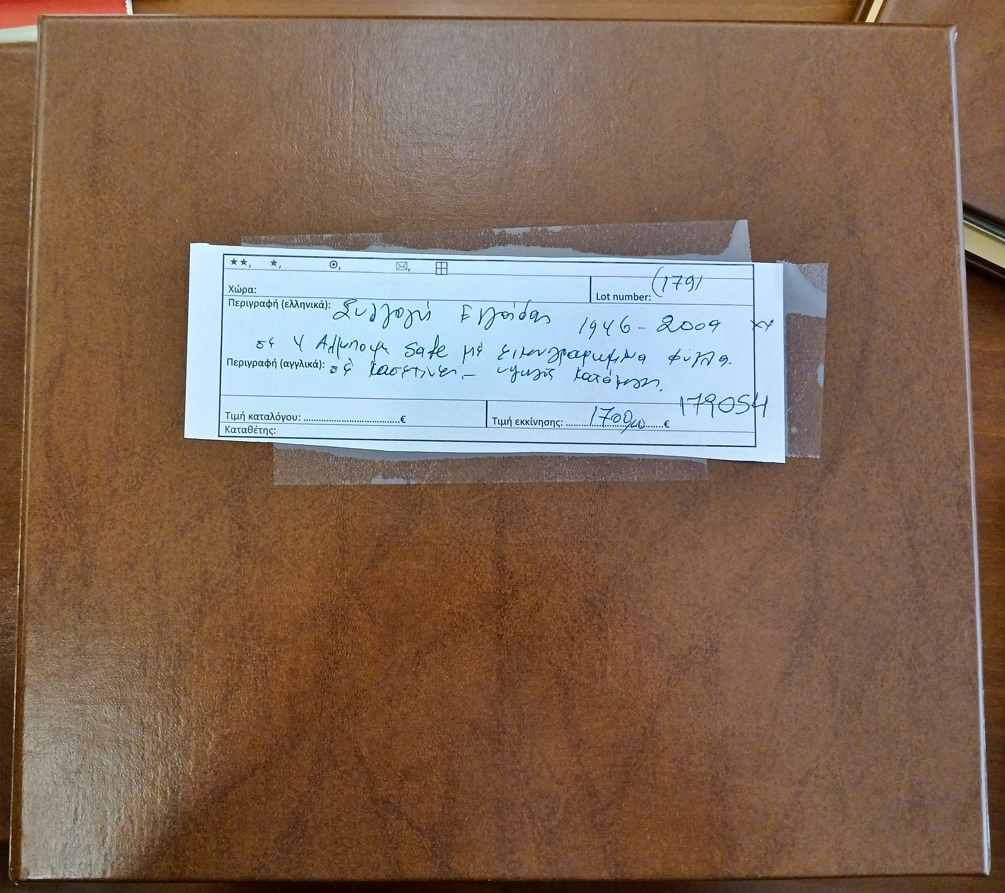 ★★, ★, ⊙, ✉, ⊞
Χώρα:
Lot number: (1791
Περιγραφή (ελληνικά): Συλλογή Ελλάδας 1946 - 2009 xx
σε 4 Αλμπουμ Safe με εικονογραφημένα φύλλα.
Περιγραφή (αγγλικά): σε κασετίνες. - υψηλός κατάλογος.
179054
Τιμή καταλόγου: ....................................€
Τιμή εκκίνησης: 1700,00 €
Καταθέτης: